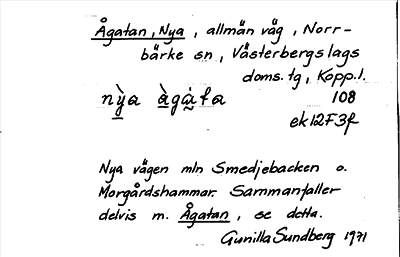 Ågatan, Nya, allmän väg, Norr-
bärke sn, Västerbergslags
doms. tg, Kopp. l.
nỳa àgȧ̀ta 108
ek12F3f
Nya vägen mln Smedjebacken o.
Morgårdshammar. Sammanfaller
delvis m. Ågatan, se detta.
Gunilla Sundberg 1971